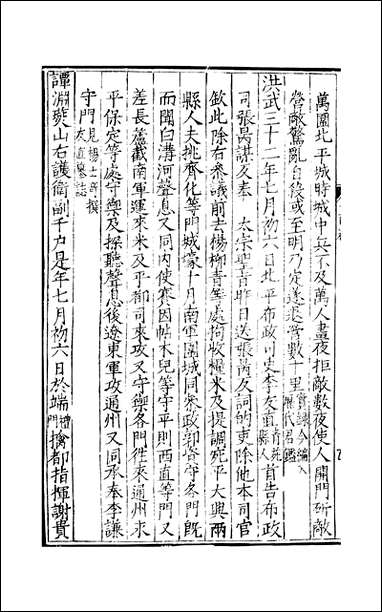 萬圍北平城時城中兵不及萬人晝夜拒敵數夜使人開門斫敵
營敵驚亂自殺或至明乃定遂退營數十里
洪武三十二年七月初六日北平布政司吏李友直首告布政
司張昺謀反奉 太宗聖旨昨日送張昺反詞的吏除他本司官
欽此除右參議前去楊柳青等處拘收糧米及提調宛平大興兩
縣人夫挑齊化等門城壕十月南軍圍城同參政郭資守各門既
而聞白溝河聲息又同內使寨因帖木兒等守平則西直等門又
差長蘆截南軍運來米及平都司來攻又守禦各門徃來通州永
平保定等處守禦及探聽聲息後遼東軍攻通州又同承奉李謙
守門見楊士奇撰友直墓誌
譚淵燕山右護衛副千户是年七月初六日於端禮門擒都指揮謝貴